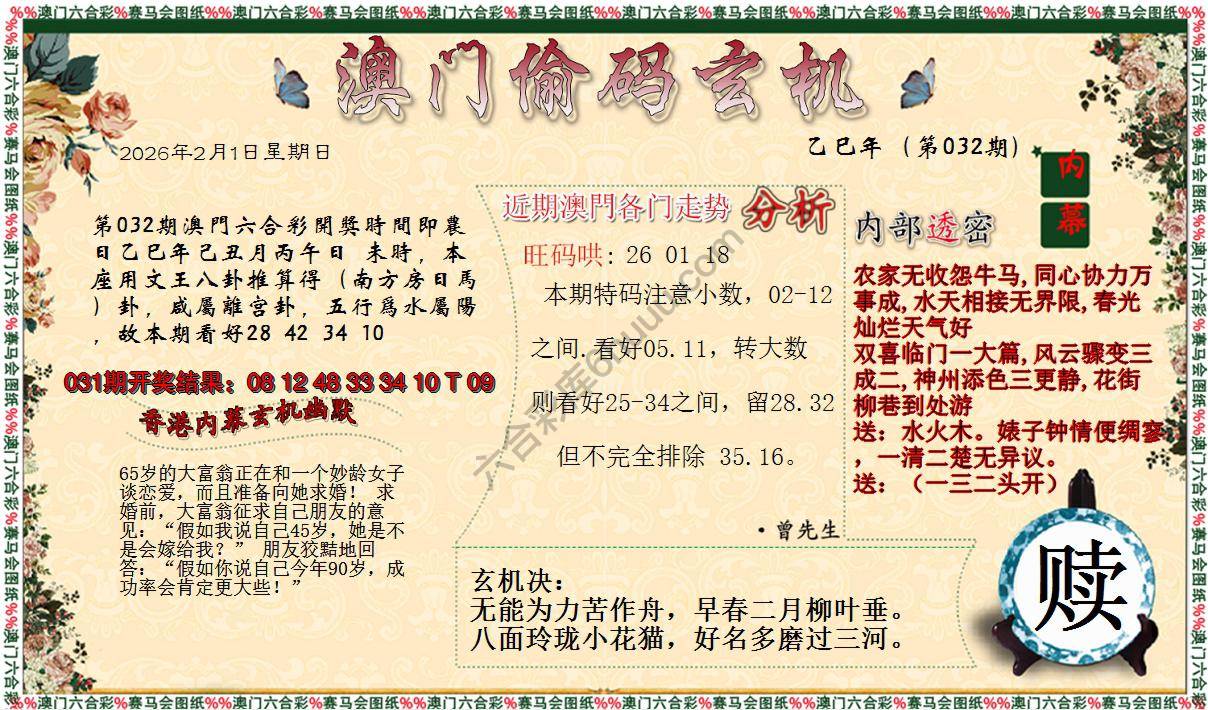 %%澳门六合彩%赛马会图纸%%澳门六合彩%赛马会图纸%%澳门六合彩%赛马会图纸%%澳门六合彩%赛马会图纸%%澳门六合彩%赛马会图纸%%澳门六合彩%赛马会图纸%%
澳门偷码玄机
2026年2月1日星期日
乙巳年（第032期）
内幕
第032期澳門六合彩開獎時間即農
日乙巳年己丑月丙午日 未時，本
座用文王八卦推算得（南方房日馬
）卦，咸屬離宫卦，五行爲水屬陽
，故本期看好28 42 34 10
031期开奖结果：08 12 48 33 34 10 T 09
香港内幕玄机幽默
65岁的大富翁正在和一个妙龄女子
谈恋爱，而且准备向她求婚！ 求
婚前，大富翁征求自己朋友的意
见：“假如我说自己45岁，她是不
是会嫁给我？” 朋友狡黠地回
答：“假如你说自己今年90岁，成
功率会肯定更大些！”
近期澳門各门走势 分析
旺码哄: 26 01 18
本期特码注意小数，02-12
之间.看好05.11，转大数
则看好25-34之间，留28.32
但不完全排除 35.16。
·曾先生
内部透密
农家无收怨牛马,同心协力万
事成,水天相接无界限,春光
灿烂天气好
双喜临门一大篇,风云骤变三
成二,神州添色三更静,花街
柳巷到处游
送：水火木。婊子钟情便绸寥
，一清二楚无异议。
送：（一三二头开）
玄机决：
无能为力苦作舟，早春二月柳叶垂。
八面玲珑小花猫，好名多磨过三河。
赎
%%澳门六合彩%赛马会图纸%%澳门六合彩%赛马会图纸%%澳门六合彩%赛马会图纸%%澳门六合彩%赛马会图纸%%澳门六合彩%赛马会图纸%%澳门六合彩%赛马会图纸%%